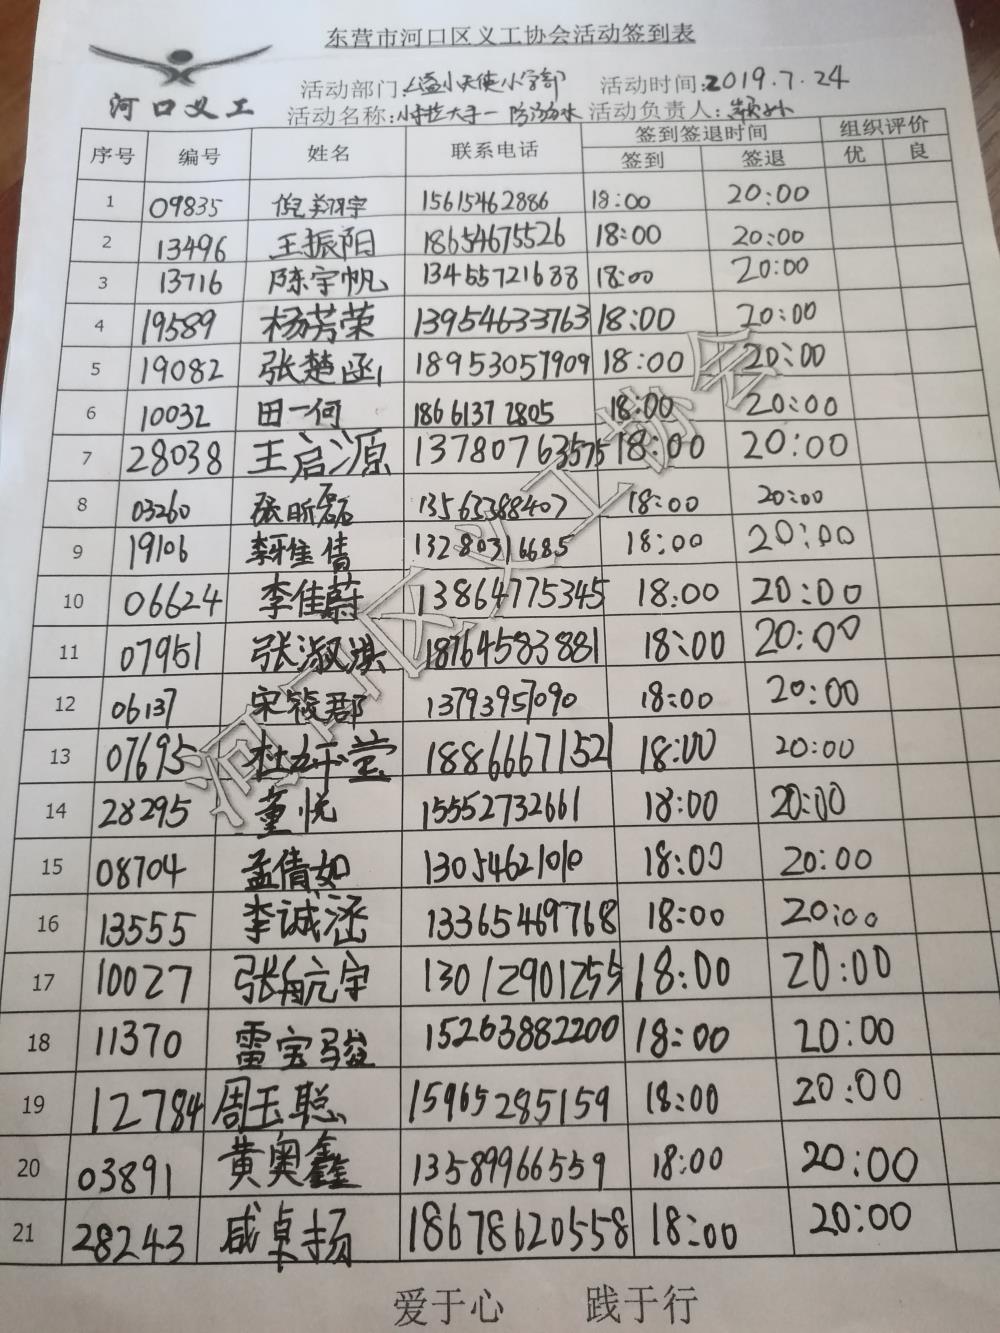 东营市河口区义工协会活动签到表
河口义工
活动部门:公益小天使小学部 活动时间:2019.7.24
活动名称:小手拉大手一防溺水 活动负责人:
序号 编号 姓名 联系电话 签到签退时间 组织评价
签到 签退 优 良
1 09835 倪翔宇 15615462886 18:00 20:00
2 13496 王振阳 18654675526 18:00 20:00
3 13716 陈宇帆 13455721688 18:00 20:00
4 19589 杨芳荣 13954633763 18:00 20:00
5 19082 张楚函 18953057909 18:00 20:00
6 10032 田一何 18661372805 18:00 20:00
7 28038 王启源 13780763575 18:00 20:00
8 03260 张昕磊 13563388407 18:00 20:00
9 19106 李佳倩 13280316685 18:00 20:00
10 06624 李佳蔚 13864775345 18:00 20:00
11 07951 张淑淇 18764583881 18:00 20:00
12 06137 宋筱郡 13793957090 18:00 20:00
13 07695 杜 莹 18866671521 18:00 20:00
14 28295 董悦 15552732661 18:00 20:00
15 08704 孟倩如 13054621010 18:00 20:00
16 13555 李诚涵 13365469768 18:00 20:00
17 10027 张航宇 13012901255 18:00 20:00
18 11370 雷宝骏 15263882200 18:00 20:00
19 12784 周玉聪 15965285159 18:00 20:00
20 03891 黄奥鑫 13589966559 18:00 20:00
21 28243 咸卓扬 18678620558 18:00 20:00
河口区义工协会
爱于心 践于行